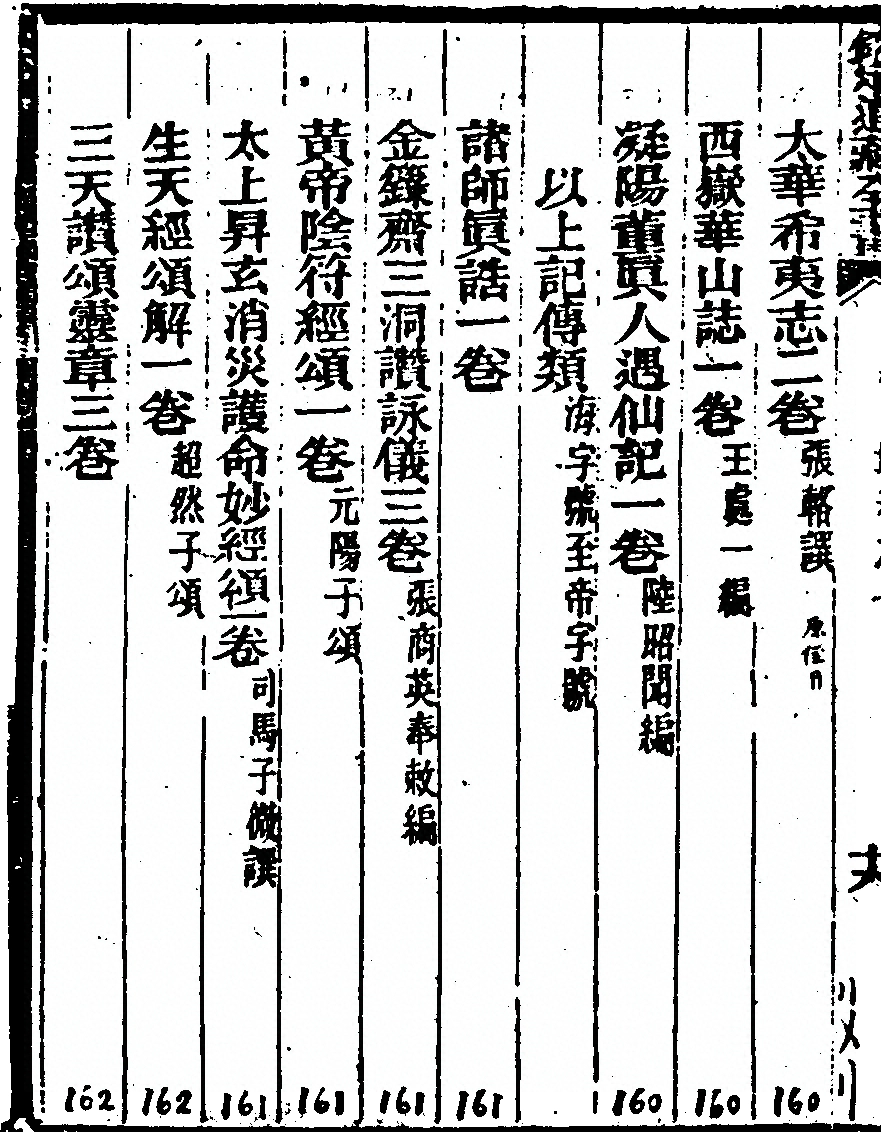 太華希夷志二卷 張輅譔 160
西嶽華山誌一卷 王處一編 160
凝陽董眞人遇仙記一卷 陸昭聞編 160
以上記傳類 海字號至帝字號
諸師眞誥一卷 161
金籙齋三洞讚詠儀三卷 張商英奉敕編 161
黃帝陰符經頌一卷 元陽子頌 161
太上昇玄消災護命妙經頌一卷 司馬子微譔 161
生天經頌解一卷 超然子頌 162
三天讚頌靈章三卷 162